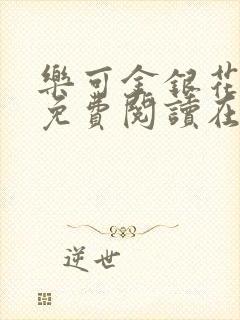 樂可金銀花
免費閱讀在
逆世